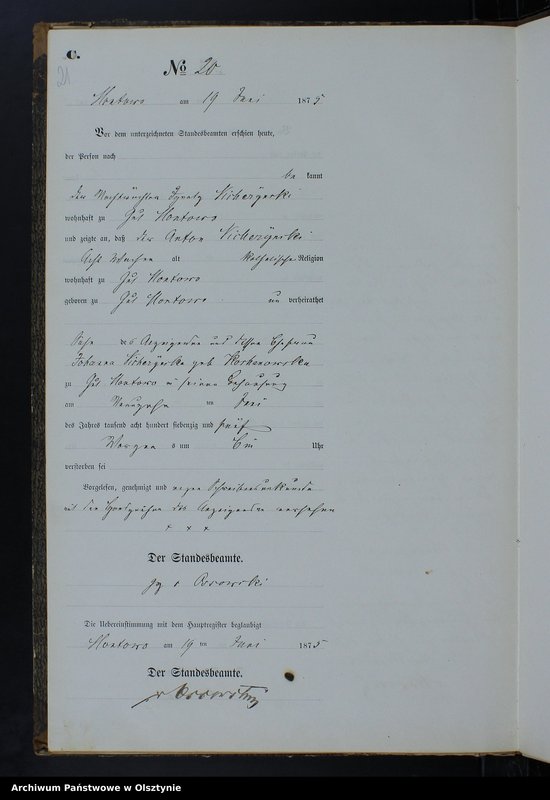 C.
21
No 20
Montowo am 19 Juni 1875
Vor dem unterzeichneten Standesbeamten erschien heute,
der Person nach
be kannt
den Nachtwächter Ignatz
wohnhaft zu Gut Montowo
und zeigte an, daß der Anton
Acht Wochen alt Katholische Religion
wohnhaft zu Gut Montowo
geboren zu Gut Montowo un verheirathet
Sohn des Anzeigenden und dessen Ehefrau
Johanna geb
zu Gut Montowo in seiner Behausung
am Neunzehn ten Juni
des Jahres tausend acht hundert siebenzig und fünf
Morgens um Ein Uhr
verstorben sei
Vorgelesen, genehmigt und wegen Schreibensunkunde
mit den Handzeichen des Anzeigenden versehen
+ + +
Der Standesbeamte.
gez v Ossowski
Die Uebereinstimmung mit dem Hauptregister beglaubigt
Montowo am 19 ten Juni 1875
Der Standesbeamte.
v Ossowski
Archiwum Państwowe w Olsztynie